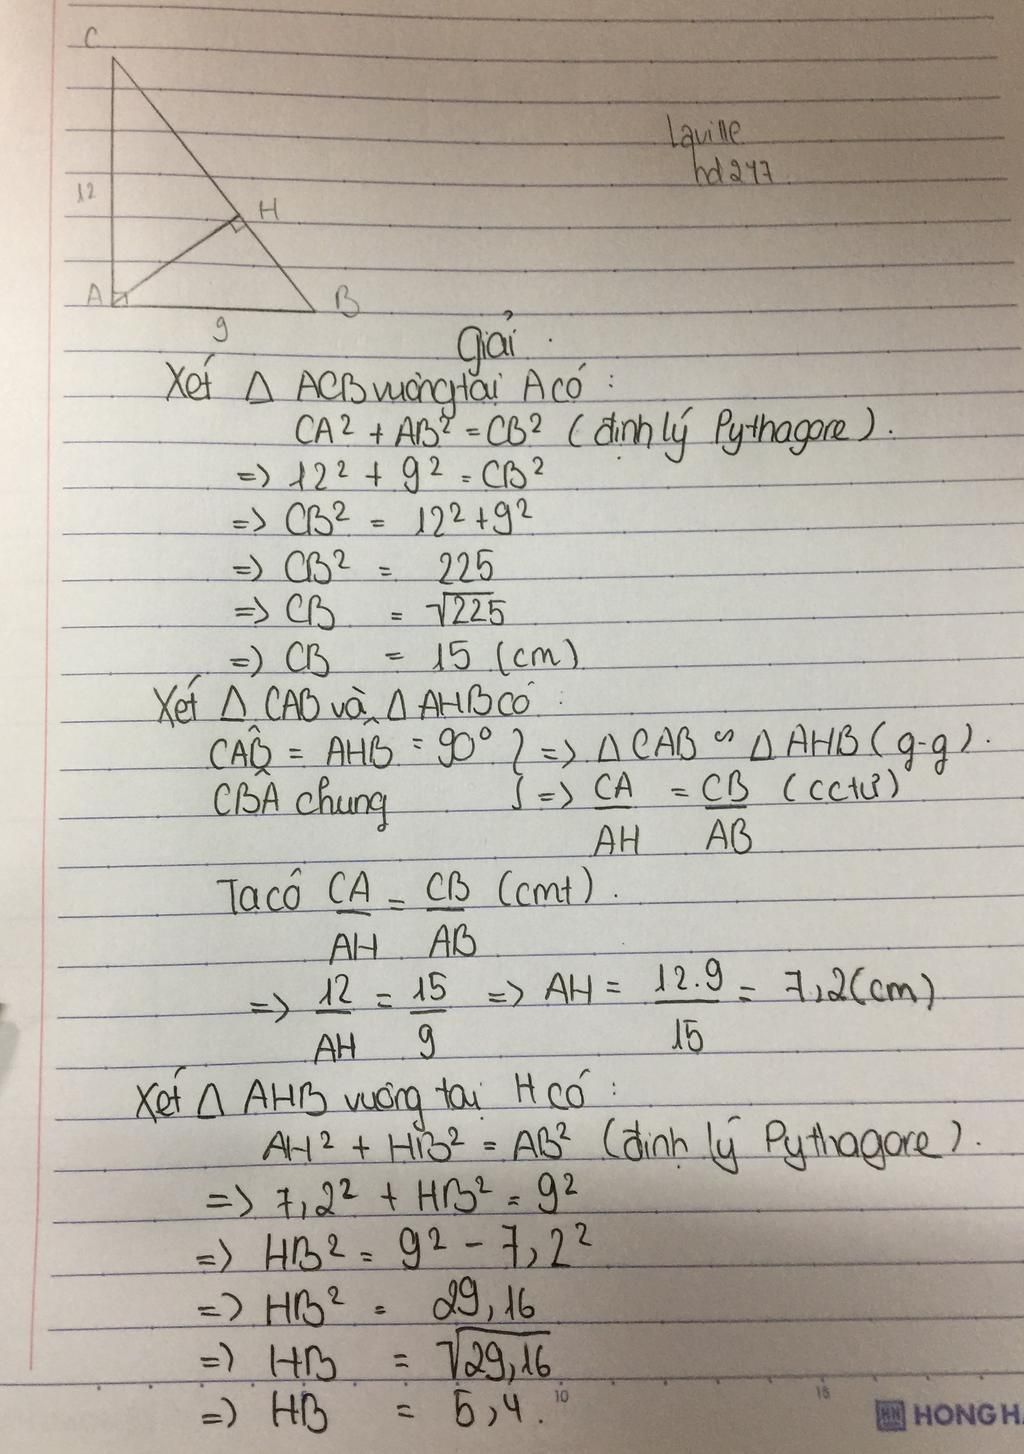 C
Laville
hd247
12
H
A
B
9
Giải
Xét Δ ACB vuông tại A có :
CA² + AB² = CB² (định lý Pythagore).
=> 12² + 9² = CB²
=> CB² = 12² + 9²
=> CB² = 225
=> CB = √225
=> CB = 15 (cm)
Xét Δ CAB và Δ AHB có :
CAB̂ = AHB̂ = 90° } => Δ CAB ∽ Δ AHB (g-g).
CBÂ chung } => CA/AH = CB/AB (cctứ)
Ta có CA/AH = CB/AB (cmt).
=> 12/AH = 15/9 => AH = 12.9/15 = 7,2 (cm)
Xét Δ AHB vuông tại H có :
AH² + HB² = AB² (định lý Pythagore).
=> 7,2² + HB² = 9²
=> HB² = 9² - 7,2²
=> HB² = 29,16
=> HB = √29,16
=> HB = 5,4.
10
15
HONG HA